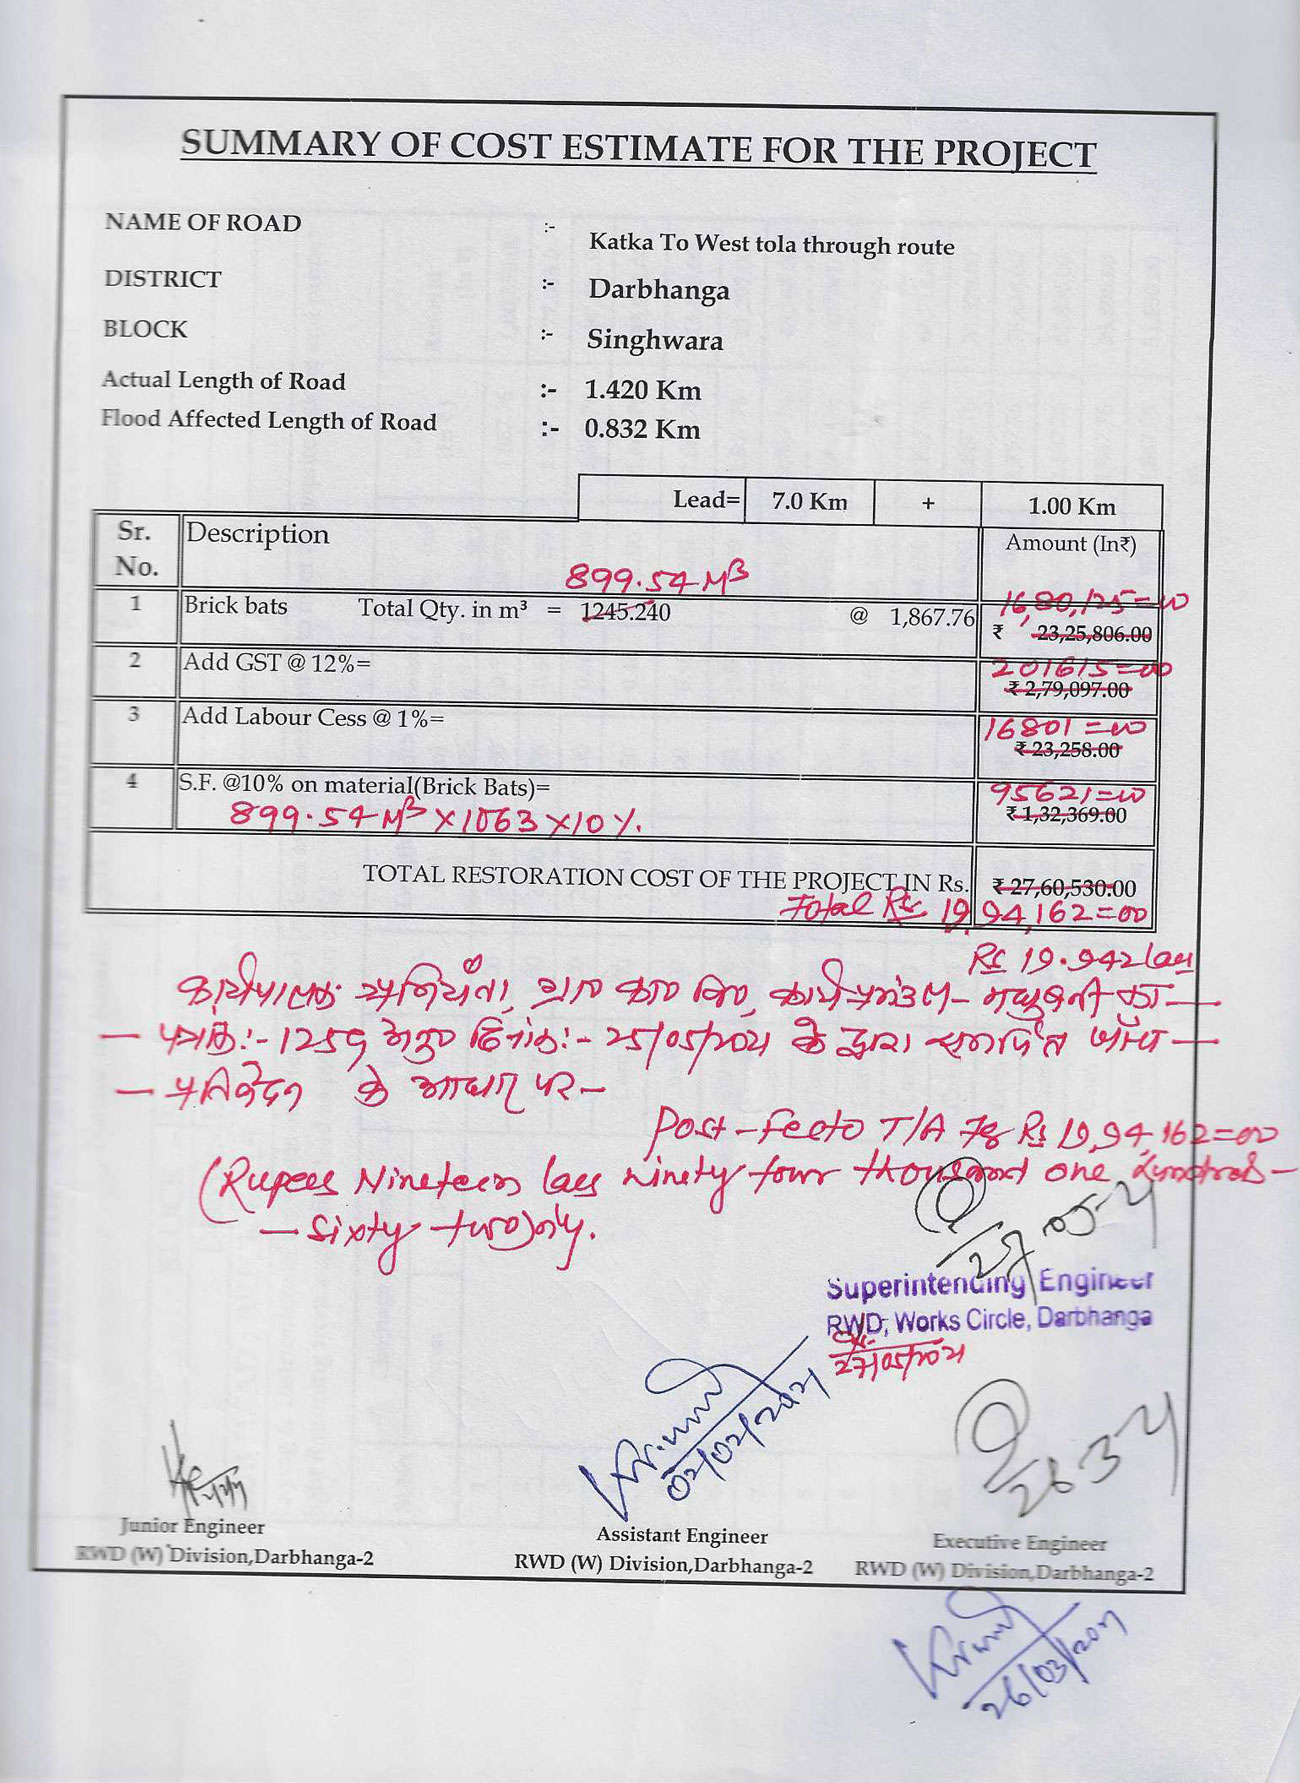 SUMMARY OF COST ESTIMATE FOR THE PROJECT
NAME OF ROAD :- Katka To West tola through route
DISTRICT :- Darbhanga
BLOCK :- Singhwara
Actual Length of Road :- 1.420 Km
Flood Affected Length of Road :- 0.832 Km
Lead= 7.0 Km + 1.00 Km
Sr. No. Description Amount (In₹)
899.54 M³ 1680,125=00
1 Brick bats Total Qty. in m³ = 1245.240 @ 1,867.76 ₹ 23,25,806.00
201615=00
2 Add GST @ 12%= ₹ 2,79,097.00
16801=00
3 Add Labour Cess @ 1%= ₹ 23,258.00
95621=00
4 S.F. @10% on material(Brick Bats)= ₹ 1,32,369.00
899.54 M³ X 1063 X 10 %.
TOTAL RESTORATION COST OF THE PROJECT IN Rs. ₹ 27,60,530.00
Total Rs 19,94,162=00
Rs 19.942 lacs
कार्यपालक अभियंता, कार्य प्रमंडल- मधुबनी का
- पत्रांक:- 1259 अनु० दिनांक:- 25/05/2021 के द्वारा समर्पित जाँच -
- प्रतिवेदन के आधार पर -
Post-fecto T/A Rs 19,94,162=00
(Rupees Nineteen lacs ninety four thousand one hundred -
- sixty two) only.
27.05.21
Superintending Engineer
RWD, Works Circle, Darbhanga
27/05/2021
02/02/2021
26.3.21
Junior Engineer
RWD (W) Division,Darbhanga-2
Assistant Engineer
RWD (W) Division,Darbhanga-2
Executive Engineer
RWD (W) Division,Darbhanga-2
26/03/2021